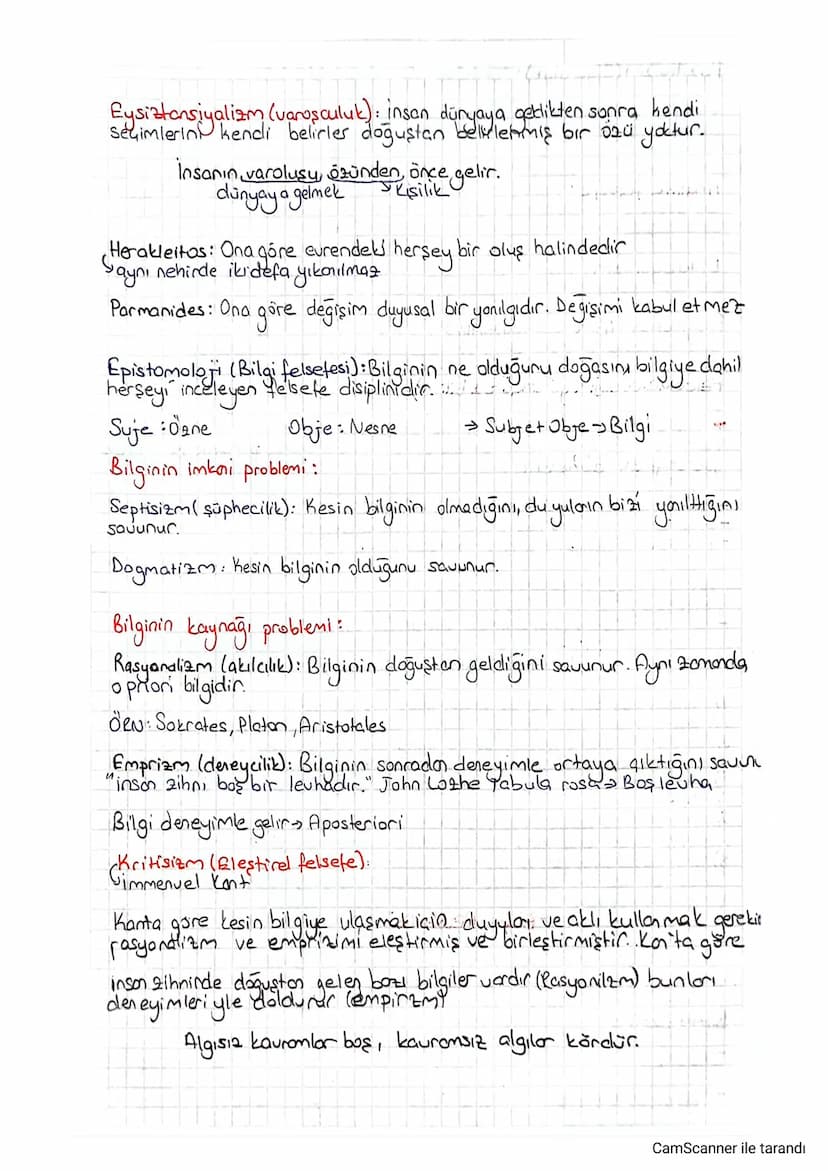 Eysiztansiyalizm (varoşculuk): İnsan dünyaya geldikten sonra kendi
seçimlerini kendi belirler doğuştan belirlenmiş bir özü yoktur.
İnsanın varoluşu, özünden, önce gelir.
dünyaya gelmek → kişilik
Herakleitos: Ona göre evrendeki herşey bir oluş halindedir
→ aynı nehirde iki defa yıkanılmaz
Parmanides: Ona göre değişim duyusal bir yanılgıdır. Değişimi kabul etmez
Epistomoloji (Bilgi felsefesi): Bilginin ne olduğunu doğasını bilgiye dahil
herşeyi inceleyen felsefe disiplinidir.
Suje : Özne Obje : Nesne → Subje + Obje → Bilgi
Bilginin imkanı problemi :
Septisizm ( şüphecilik): Kesin bilginin olmadığını, duyuların bizi yanılttığını
savunur.
Dogmatizm : Kesin bilginin olduğunu savunur.
Bilginin kaynağı problemi :
Rasyonalizm (akılcılık): Bilginin doğuştan geldiğini savunur. Aynı zamanda
a priori bilgidir.
ÖRN: Sokrates, Platon, Aristotales
Emprizm (deneycilik): Bilginin sonradan deneyimle ortaya çıktığını savun
"insan zihni boş bir levhadır." John Locke Tabula rasa → Boş levha
Bilgi deneyimle gelir → Aposteriori
Kritisizm (Eleştirel felsefe):
→ immenuel Kant
Kanta göre kesin bilgiye ulaşmak için duyuları ve aklı kullanmak gerekir
rasyonalizm ve emprizimi eleştirmiş ve birleştirmiştir. Kan'ta göre
insan zihninde doğuştan gelen bazı bilgiler vardır (Rasyonilzm) bunları
deneyimleriyle doldurur (empirzm)
Algısız kavramlar boş, kavramsız algılar kördür.
CamScanner ile tarandı